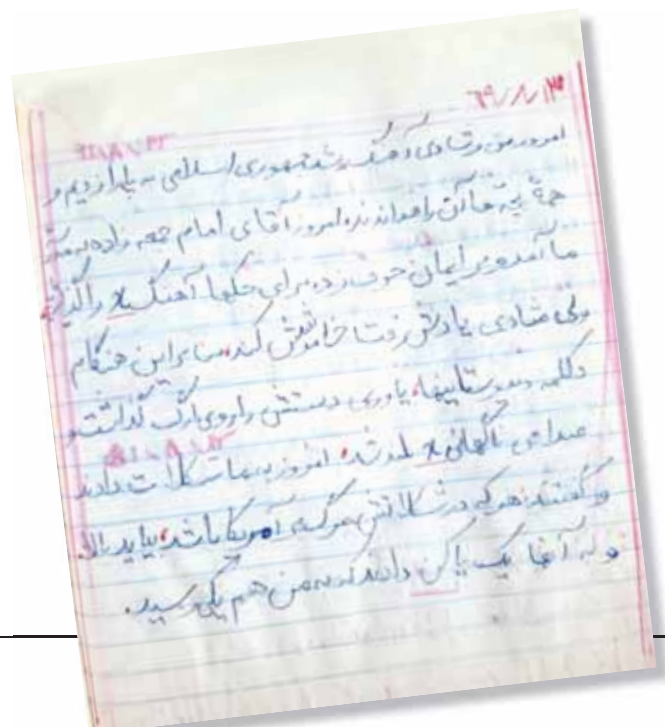 ۶۹/۸/۱۳
امروز من و شادی آهنگ جمهوری اسلامی به یاد آوردیم و
همهٔ بچه‌ها آن را خواندند امروز آقای امام جمعه زاده به
ما آمد و برایمان حرف زد برای حکها آهنگ را
ولی شادی یادش رفت خاموشش کند بنابراین هنگام
دکلمه یاوری دستش را روی ارگ گذاشت و
صدای ناگهانی بلند شد امروز به ما شکلات دادند
و گفتند هرکی در شکلاتش مرگ به آمریکا باشد، بیاید بالا
و به آنها یک پاکن دادند که به من هم یکی رسید.